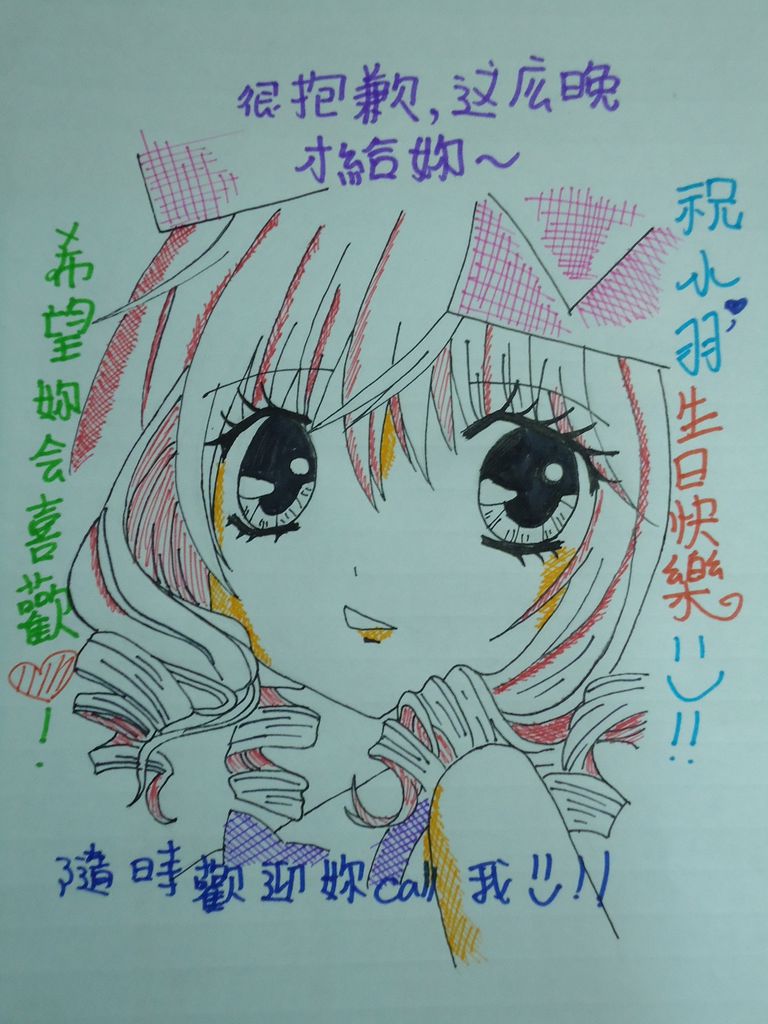 很抱歉,这么晚
才給妳~
祝水羽生日快樂!!
希望妳会喜歡!
隨時歡迎妳call我!!